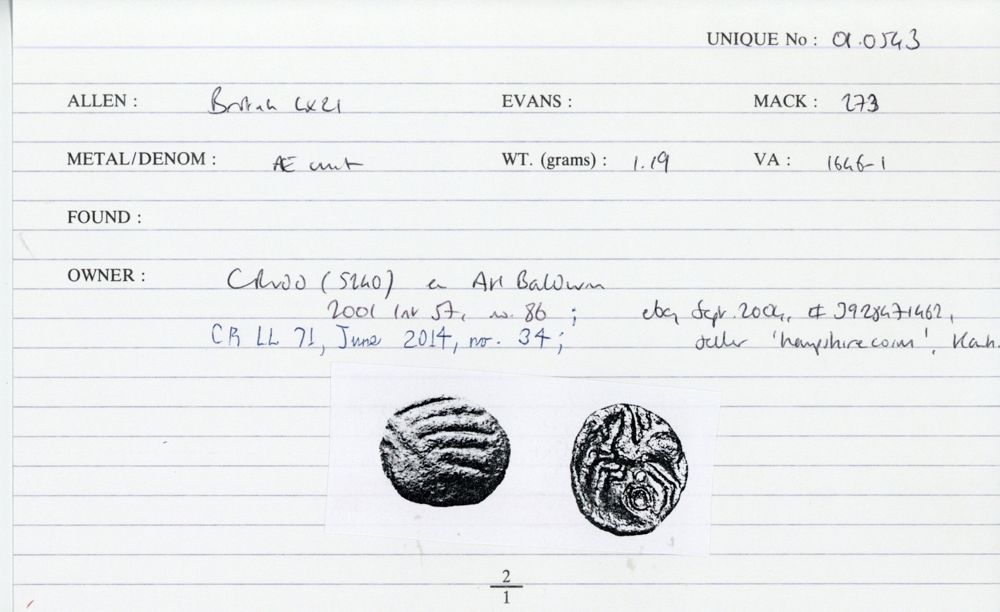 UNIQUE No : 01.0543
ALLEN : British LX21 EVANS : MACK : 273
METAL/DENOM : Æ unit WT. (grams) : 1.19 VA : 1646-1
FOUND :
OWNER : CR (5240) ex A H Baldwin
2001 57, no. 86 ; ebay Sept. 2004, # 3928471462,
CR LL 71, June 2014, no. 34; seller 'hampshirecoins',
2
1